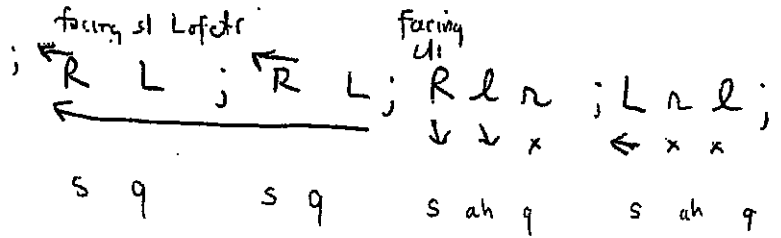 facing sl L of ctr facing
; R L ; R L ; R l r ; L r l ;
↓ ↓ x ← x x
s q s q s ah q s ah q